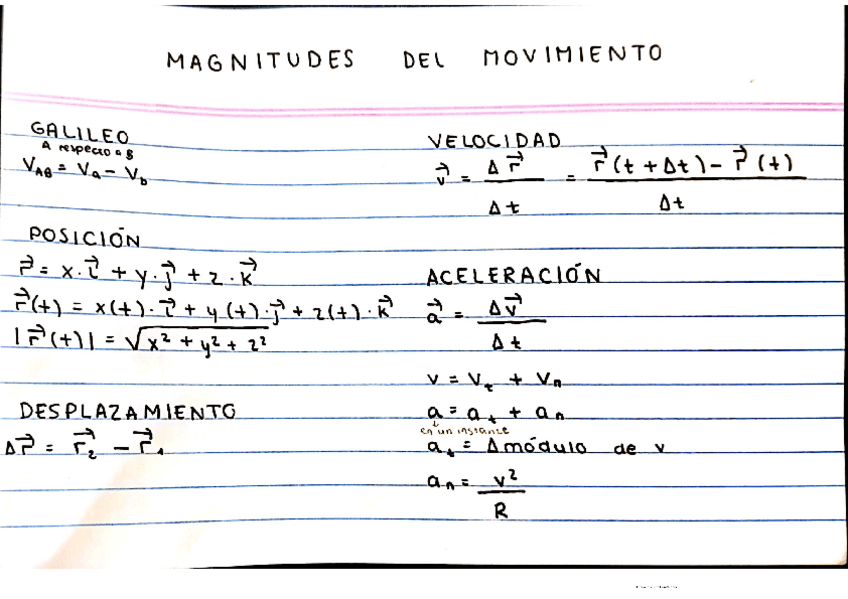 MAGNITUDES DEL MOVIMIENTO
GALILEO
A respecto a B
V_AB = V_a - V_b
POSICIÓN
r⃗ = x·i⃗ + y·j⃗ + z·k⃗
r⃗(t) = x(t)·i⃗ + y(t)·j⃗ + z(t)·k⃗
|r⃗(t)| = √(x² + y² + z²)
DESPLAZAMIENTO
Δr⃗ = r⃗₂ - r⃗₁
VELOCIDAD
v⃗ = Δr⃗ / Δt = r⃗(t + Δt) - r⃗(t) / Δt
ACELERACIÓN
a⃗ = Δv⃗ / Δt
v = v_t + v_n
a = a_t + a_n
en un instante
a_t = Δ módulo de v
a_n = v² / R